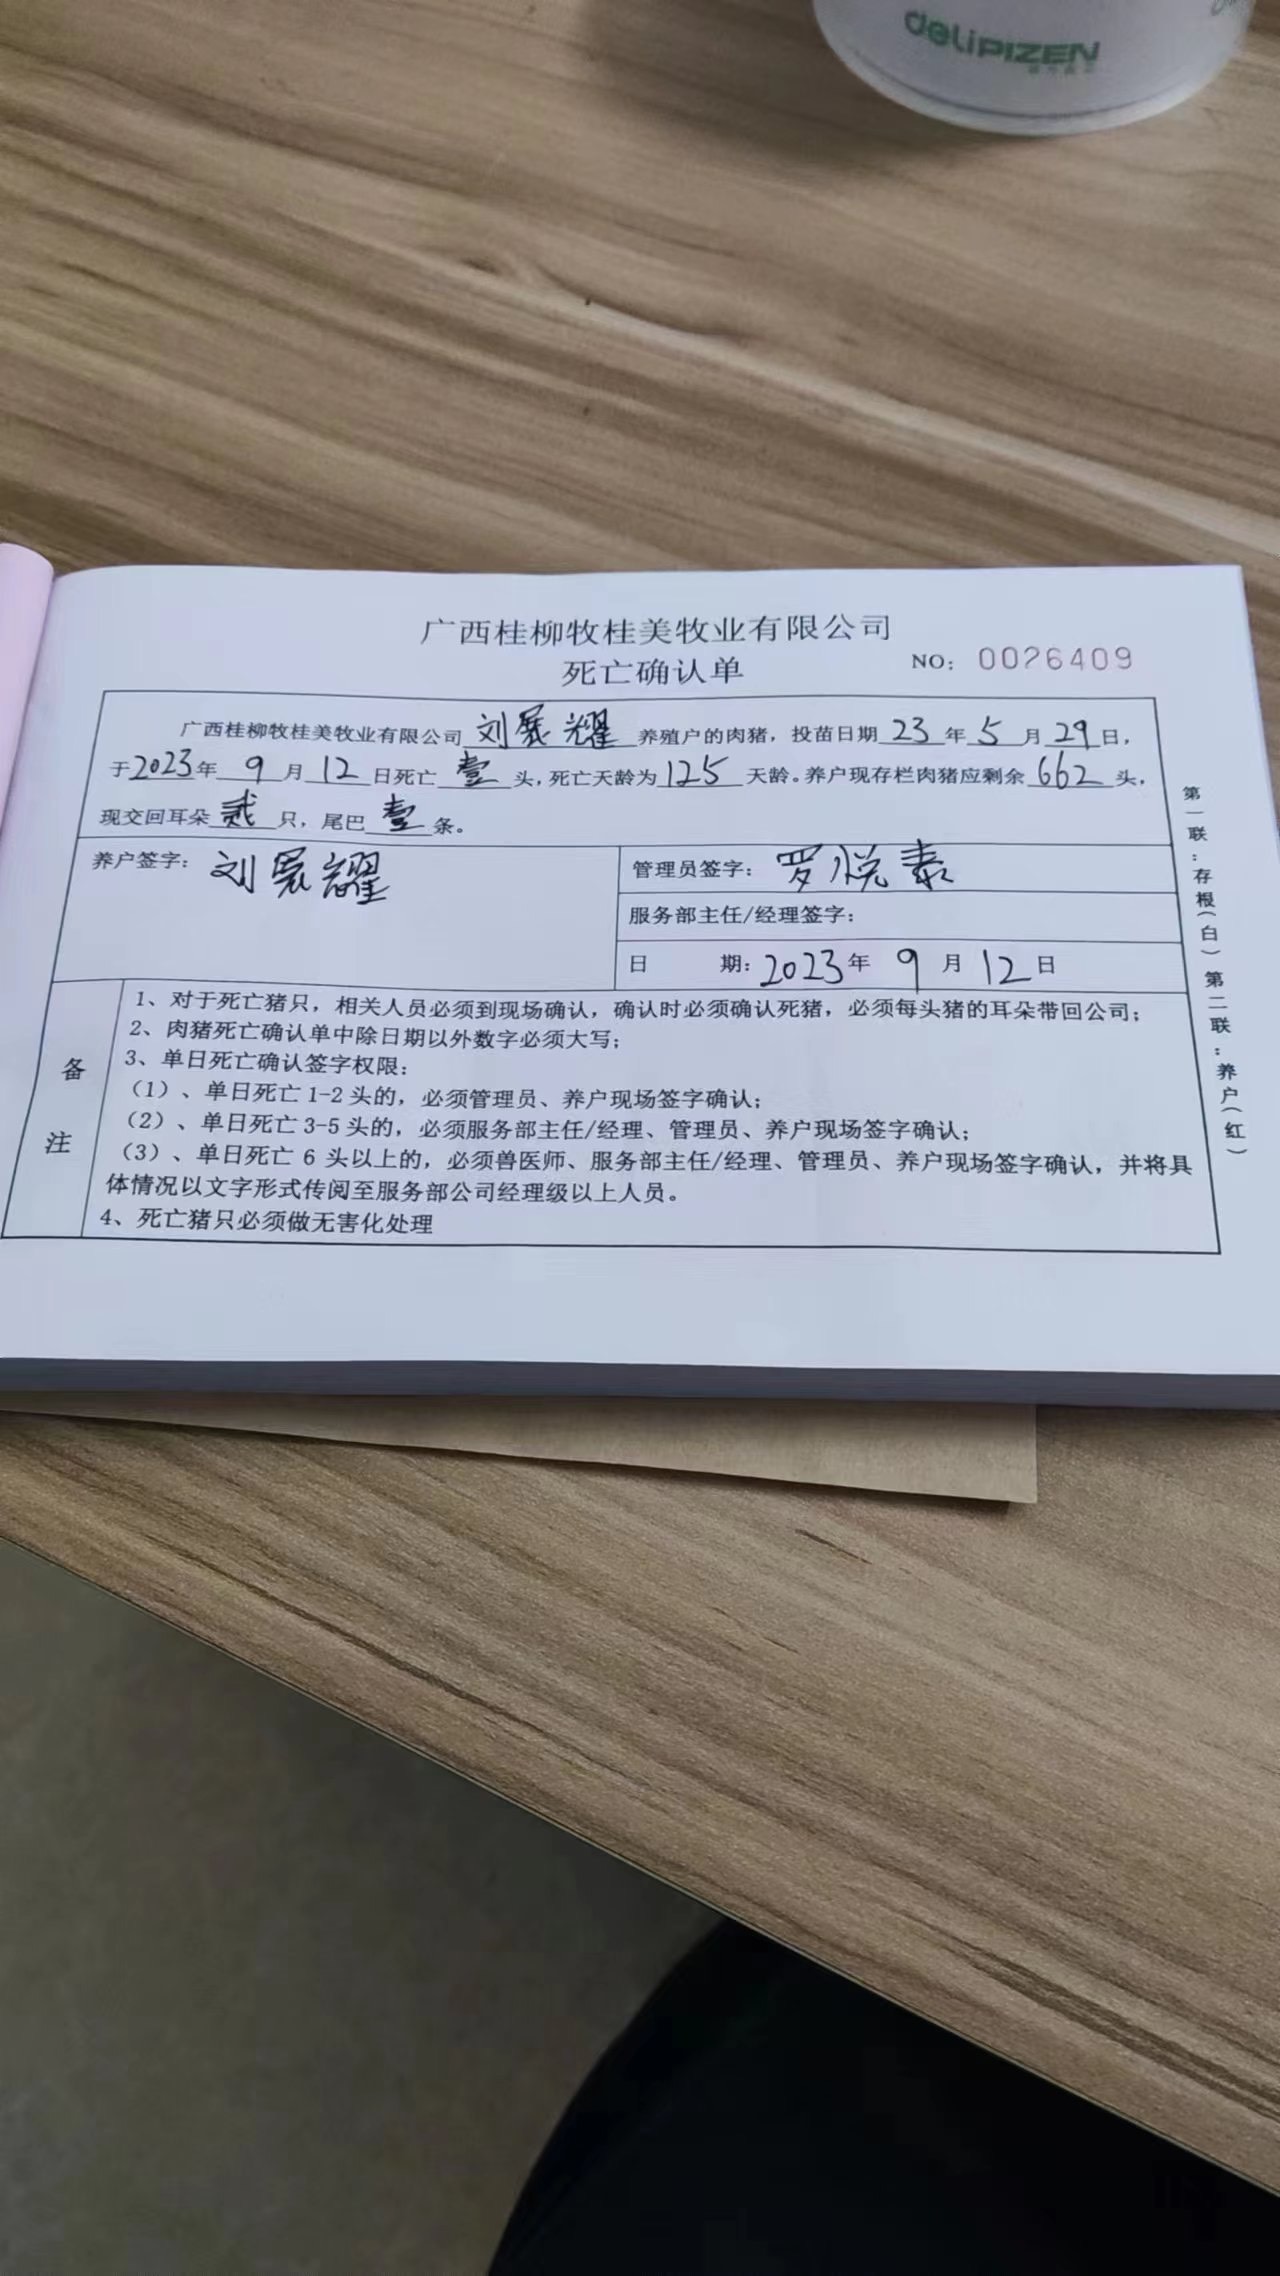 deliPIZEN
广西桂柳牧桂美牧业有限公司
死亡确认单
NO: 0026409
广西桂柳牧桂美牧业有限公司 刘展耀 养殖户的肉猪，投苗日期 23 年 5 月 29 日，
于2023年 9 月 12 日死亡 壹 头，死亡天龄为 125 天龄。养户现存栏肉猪应剩余 662 头，
现交回耳朵 贰 只，尾巴 壹 条。
养户签字：刘展耀
管理员签字：罗悦泰
服务部主任/经理签字：
日 期：2023年 9 月 12日
备注
1、对于死亡猪只，相关人员必须到现场确认，确认时必须确认死猪，必须每头猪的耳朵带回公司；
2、肉猪死亡确认单中除日期以外数字必须大写；
3、单日死亡确认签字权限：
（1）、单日死亡 1-2 头的，必须管理员、养户现场签字确认；
（2）、单日死亡 3-5 头的，必须服务部主任/经理、管理员、养户现场签字确认；
（3）、单日死亡 6 头以上的，必须兽医师、服务部主任/经理、管理员、养户现场签字确认，并将具
体情况以文字形式传阅至服务部公司经理级以上人员。
4、死亡猪只必须做无害化处理
第一联：存根（白） 第二联：养户（红）